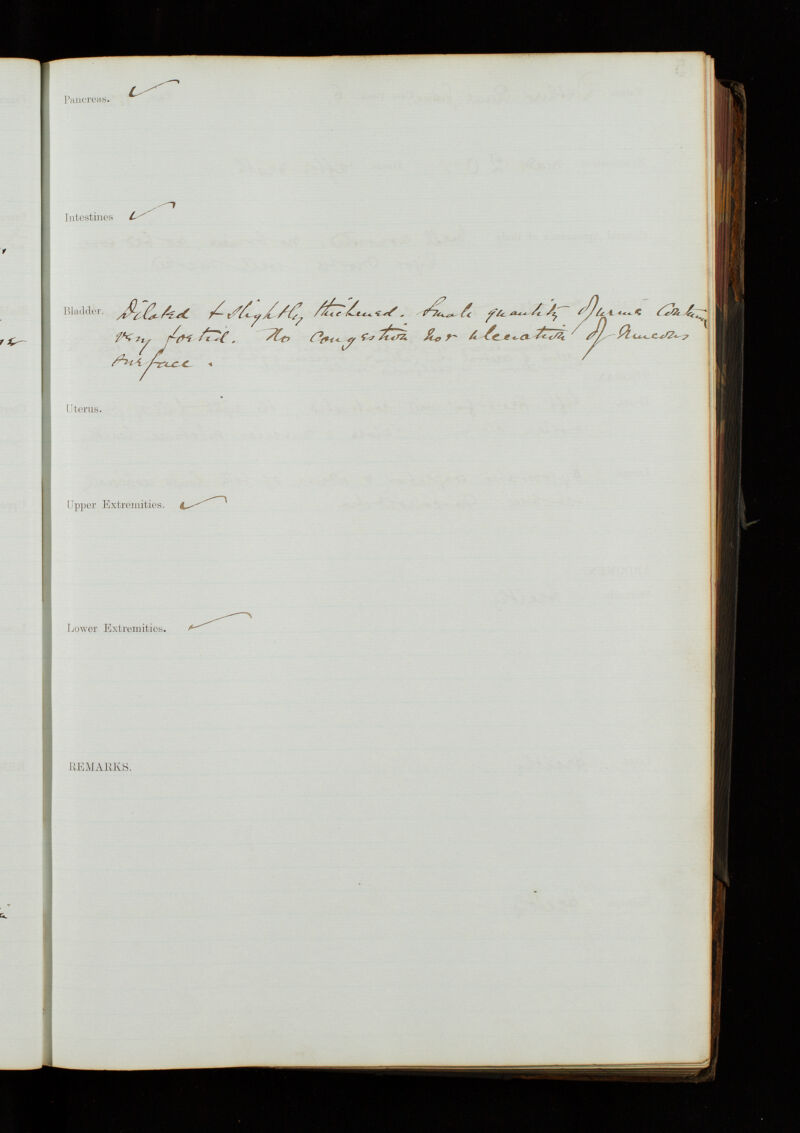 Pancreas. ✓
Intestines ✓
Bladder. Dilated & slightly thickened. Small quantity of urine
very foetid. No congestion nor ulceration of mucous
surface.
Uterus.
Upper Extremities. ✓
Lower Extremities. ✓
REMARKS.